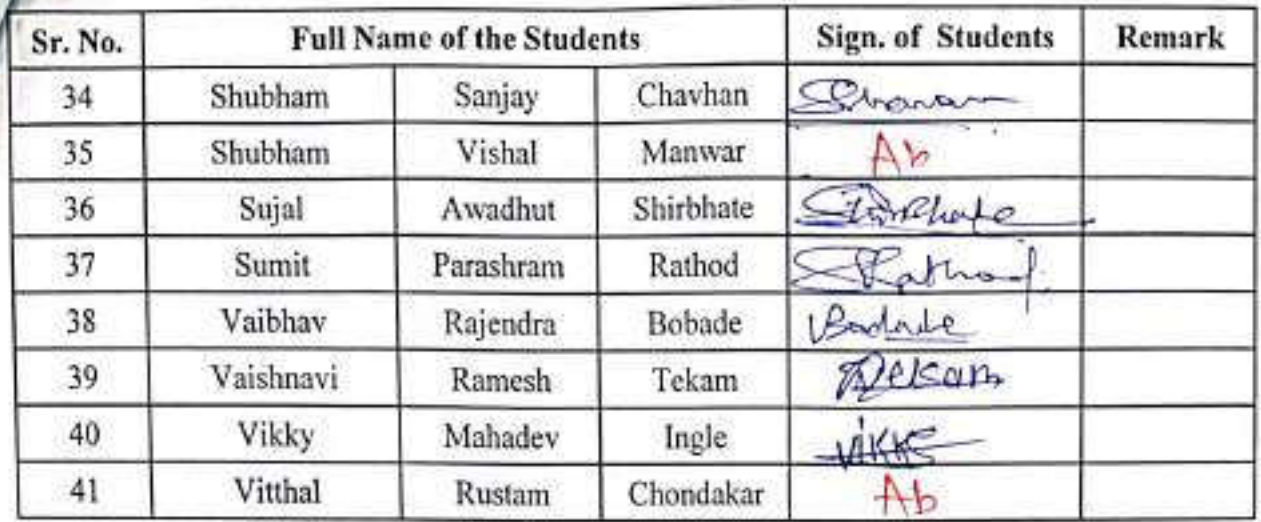 Sr. No. Full Name of the Students Sign. of Students Remark
34 Shubham Sanjay Chavhan
35 Shubham Vishal Manwar Ab
36 Sujal Awadhut Shirbhate Shirbhate
37 Sumit Parashram Rathod SRathod
38 Vaibhav Rajendra Bobade
39 Vaishnavi Ramesh Tekam
40 Vikky Mahadev Ingle
41 Vitthal Rustam Chondakar Ab